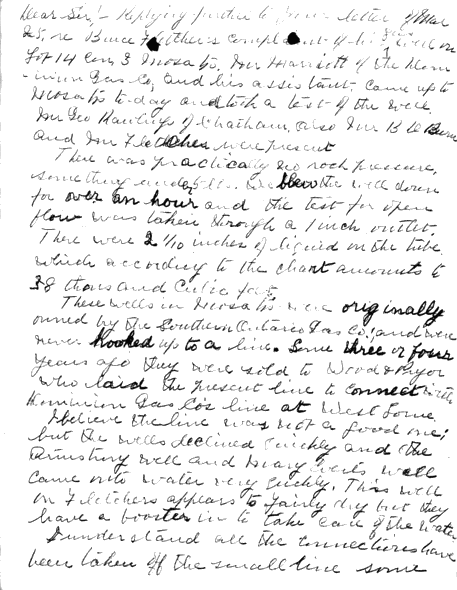 Dear Sir:- Replying further to your letter of Mar
25, re Bruce Fletcher's complaint of his gas well on
Lot 14 Con 3 Mosa Tp, Mr Marriott of the Dom-
inion Gas Co, and his assistant came up to
Mosa Tp to-day and took a test of the well.
Mr Geo Rawlings of Chatham, also Mr B
and Mr Fletcher were present
There was practically no rock pressure,
something under lbs. We blew the well down
for over an hour and the test for open
flow was taken through a 1 inch outlet.
There were 2 /10 inches of liquid on the tube
which according to the chart amounts to
38 thousand Cubic feet,
These wells in Mosa Tp were originally
owned by the Southern Ontario Gas Co; and were
never hooked up to a line. Some three or four
years ago they were sold to Wood & Pryor
who laid the present line to connect with
Dominion Gas Co's line at West Lorne
I believe the line was not a good one;
but the wells declined quickly and the
Armstrong well and well
came into water very quickly. This well
on Fletchers appears to fairly dry but they
have a booster in to take care of the water
I understand all the connections have
been taken off the small line some